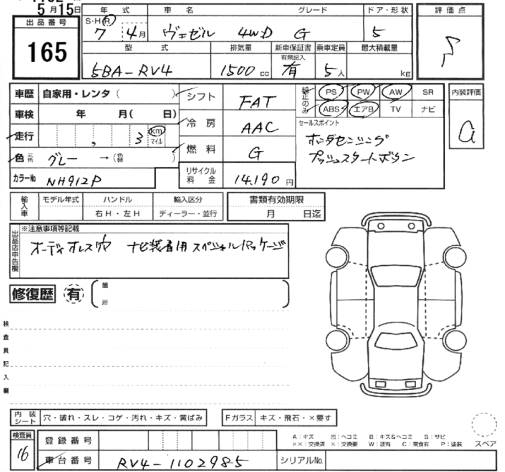 5月15日
出品番号
165
年式 車名 グレード ドア・形状
S・H・R 7年4月 ヴェゼル 4WD G 5
型式 排気量 新車保証書 乗車定員 最大積載量
有無記入
5BA-RV4 1500cc 有 5人 kg
評価点
S
車歴 自家用・レンタ( )
車検 年 月( 日)
走行 , 3 km マイル
色 元色 グレー → (色替 )
カラーNo NH912P
シフト FAT
冷房 AAC
燃料 G
リサイクル料金 14,190円
純正のみ
PS PW AW SR
ABS エアB TV ナビ
セールスポイント
ホンダセンシング
プッシュスタートボタン
内装評価
a
輸入車
モデル年式 ハンドル 輸入区分
右H・左H ディーラー・並行
書類有効期限
月 日迄
出品店申告欄
※注意事項等記載
オーディオレス穴 ナビ装着用スペシャルパッケージ
修復歴 有
箇所
検査員記入欄
内装シート 穴・破れ・スレ・コゲ・汚れ・キズ・黄ばみ
Fガラス キズ・飛石・×要す
検査員
16
登録番号
車台番号 RV4-1102985 シリアルNo.
A:キズ U:ヘコミ B:キズ&ヘコミ S:サビ
××:交換済 X:交換要 W:波有 C:腐食有 P:塗装
スペア